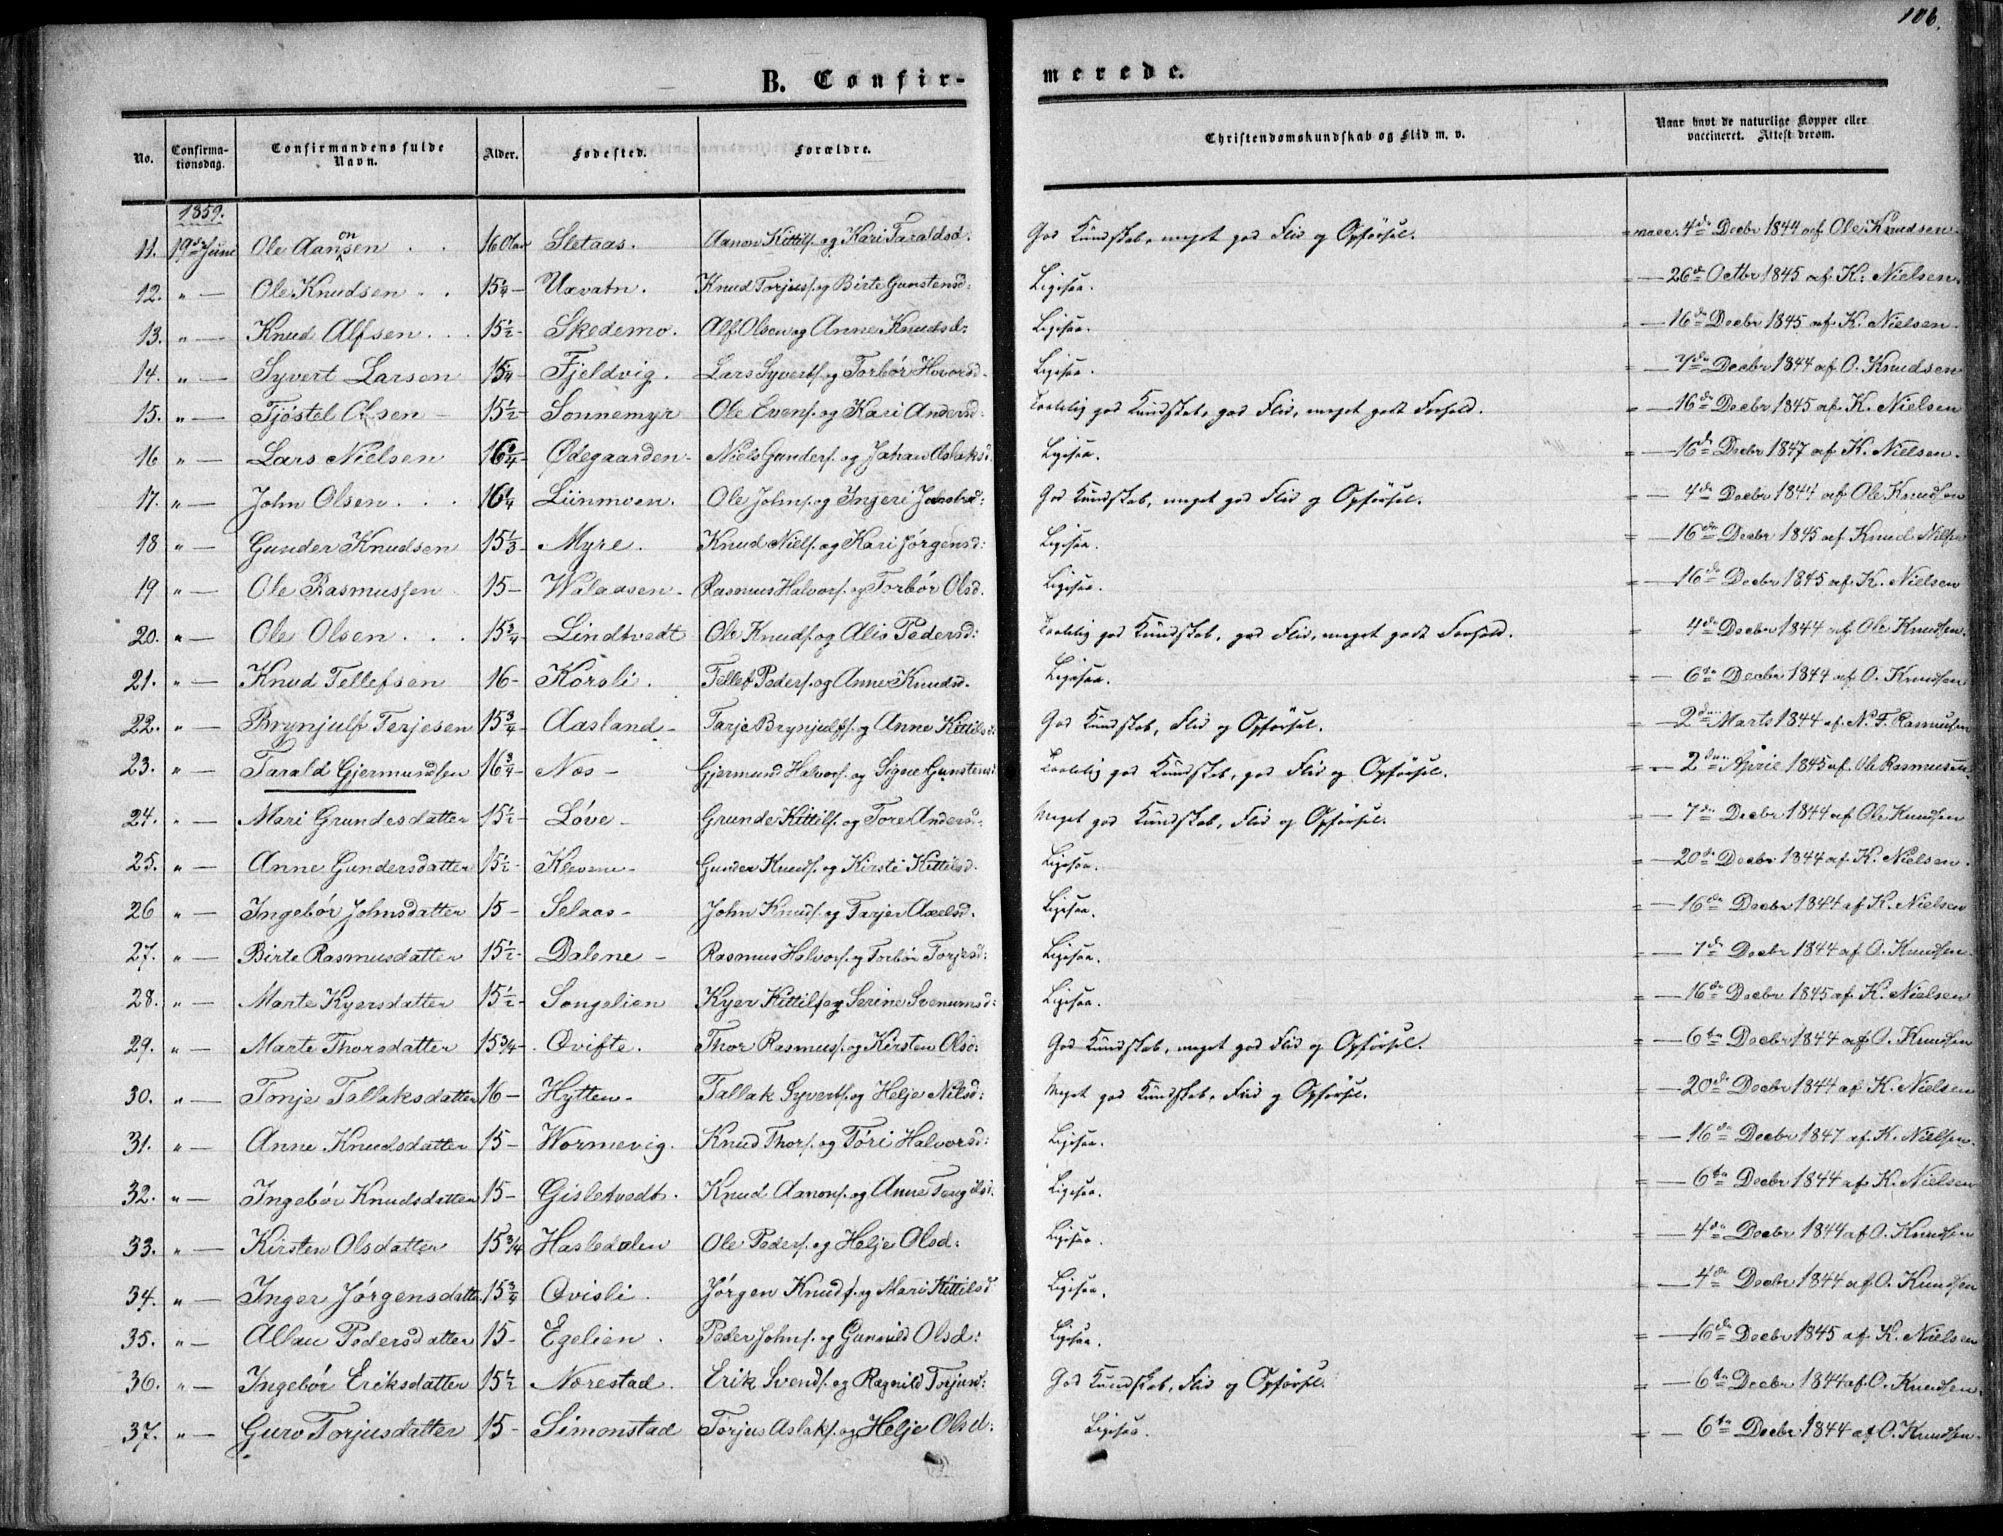 106.
B. Confir-
merede.
No.
Confirma-
tionsdag.
Confirmandens fulde
Navn.
Alder.
Fødested.
Forældre.
Christendomskundskab og Flid m. v.
Naar havt de naturlige Kopper eller
vaccineret. Attest derom.
1859.
11. 19de Juni Ole Aanonsen . . 16 Aar Sletaas. Aanon Kittils. og Kari Taraldsd. God Kundskab, meget god Flid og Opførsel. = vacc. 4de Decbr 1844 af Ole Knudsen.
12. " — Ole Knudsen . . 15 1/4 – Uævatn. Knud Torjus. og Birte Gunstensd: Ligesaa. = — 26de Octbr 1845 af K. Nielsen.
13. " — Knud Alfsen . . . 15 1/2 – Skedemo. Alf Olsen og Anne Knudsd: Ligesaa. = — 16de Decbr 1845 af K. Nielsen.
14. " — Syvert Larsen 15 1/4 – Fjeldvig. Lars Syverts. og Torbør Hovorsd. Ligesaa. = — 7de Decbr 1844 af O. Knudsen
15. " — Tjøstel Olsen – 15 1/2 – Sonnemyr Ole Evens. og Kari Andersd: Taalelig god Kundskab, god Flid, meget godt Forhold. = — 16de Decbr 1845 af K. Nielsen
16 " — Lars Nielsen 16 1/4 – Ødegaarden – Niels Gunders. og Johan Aslaksd. Ligesaa. = — 16de Decbr 1847 af K. Nielsen.
17. " — John Olsen . . . 16 1/4 Liinmoen. Ole Johns. og Ingeri Jensd: God Kundskab, meget god Flid og Opførsel. = — 4de Decbr 1844 af Ole Knudsen
18 " — Gunder Knudsen 15 1/3 – Myre. Knud Niels. og Kari Jørgensd: Ligesaa. = — 16de Decbr 1845 af Knud Nilsen
19 " — Ole Rasmussen 15 – Walaasen – Rasmus Halvors. og Torbør Olsd. Ligesaa. — 16de Decbr 1845 af K. Nielsen
20. " — Ole Olsen . . . 15 3/4 – Lindtvedt Ole Knuds. og Alis Pedersd: Taalelig god Kundskab, god Flid, meget godt Forhold. = 4de Decbr 1844 af Ole Knudsen.
21. " — Knud Tellefsen 16 – Korsli. Tellef Peders. og Anne Knudsd. Ligesaa. = — 6te Decbr 1844 af O. Knudsen
22. " — Brynjulf Terjesen 15 3/4 – Aasland – Tarje Brynjulfs. og Anne Kittilsd: God Kundskab, Flid og Opførsel. = — 2den Marts 1844 af N. F. Rasmusen
23. " — Tarald Gjermundsen 16 3/4 – Næs – Gjermund Halvors. og Signe Gunstensd Taalelig god Kundskab, god Flid og Opførsel. = — 2den April 1845 af Ole Rasmusen.
24. " — Mari Grundesdatter 15 1/2 – Løve – Grunde Kittils. og Tore Andersd: Meget god Kundskab, Flid og Opførsel. = — 7de Decbr 1844 af Ole Knudsen
25. " — Anne Gundersdatter 15 1/2 – Klevene – Gunder Knuds. og Kirsti Kittilsd. Ligesaa. = — 20de Decbr 1844 af K. Nielsen.
26 " — Ingebør Johnsdatter 15 – Selaas – John Knuds. og Tarjer Axelsd. Ligesaa. = — 16de Decbr 1844 af K. Nielsen
27. " — Birte Rasmusdatter 15 1/2 – Dalene – Rasmus Halvors. og Torbør Torjesd: Ligesaa. = — 7de Decbr 1844 af O. Knudsen.
28. " — Marte Kyersdatter 15 1/2 – Songelien Kyer Kittils. og Serine Svenumsd: Ligesaa. = — 16de Decbr 1845 af K. Nielsen
29. " — Marte Thorsdatter 15 3/4 – Qvifte. Thor Rasmus. og Kirsten Olsd: God Kundskab, meget god Flid og Opførsel. = — 6te Decbr 1844 af O. Knudsen
30. " — Tonje Tallaksdatter 16 – Hytten – Tallak Syverts. og Helje Nilsd: Meget god Kundskab, Flid og Opførsel. = — 20de Decbr 1844 af K. Nielsen
31. " — Anne Knudsdatter 15 – Wormevig. Knud Thors. og Tøri Halvorsd: Ligesaa. = — 16de Decbr 1847 af K. Nielsen.
32. " — Ingebør Knudsdatter 15 – Gisletvedt. Knud Aanons. og Anne Tengilsd. Ligesaa. = — 6te Decbr 1844 af K. Nielsen
33. " — Kirsten Olsdatter 15 3/4 Hasledalen Ole Peders. og Helje Olsd: Ligesaa. = — 4de Decbr 1844 af O. Knudsen
34. " — Inger Jørgensdatter 15 3/4 Qvisli. Jørgen Knuds. og Mari Kittilsd Ligesaa. = — 4de Decbr 1844 af O. Knudsen
35. " — Allau Pedersdatter 15 – Egelien . Peder Johns. og Gunnild Olsd: Ligesaa. = — 16de Decbr 1845 af K. Nielsen
36. " — Ingebør Eriksdatter 15 1/2 – Nærestad. Erik Svends. og Ragnild Torjusd: God Kundskab, Flid og Opførsel. = — 6te Decbr 1844 af O. Knudsen.
37. " — Guro Torjusdatter 15 – Simonstad Torjus Aslaks. og Helje Olsd: Ligesaa. = — 6te Decbr 1844 af O. Knudsen.